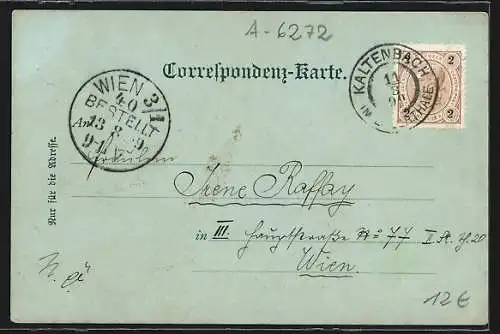 A-6272
Correspondenz-Karte.
KALTENBACH
IM
11
8
2
2 2
WIEN 3/1
40
BESTELLT
13 8 9
An
Fräulein
Irene Raffay
in III. Hauptstraße No 77 II. St. Th. 20
Wien.
Nur für die Adresse.
12€